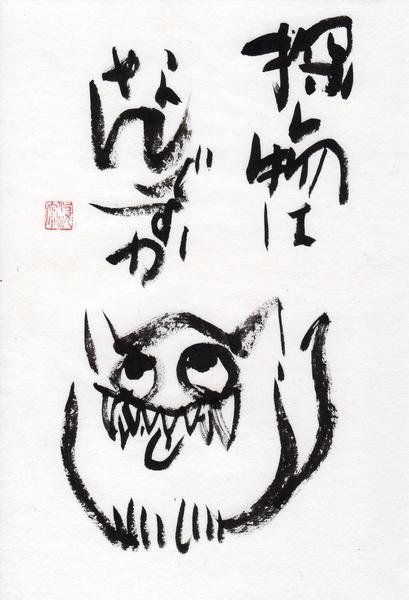 探物は
なんですか